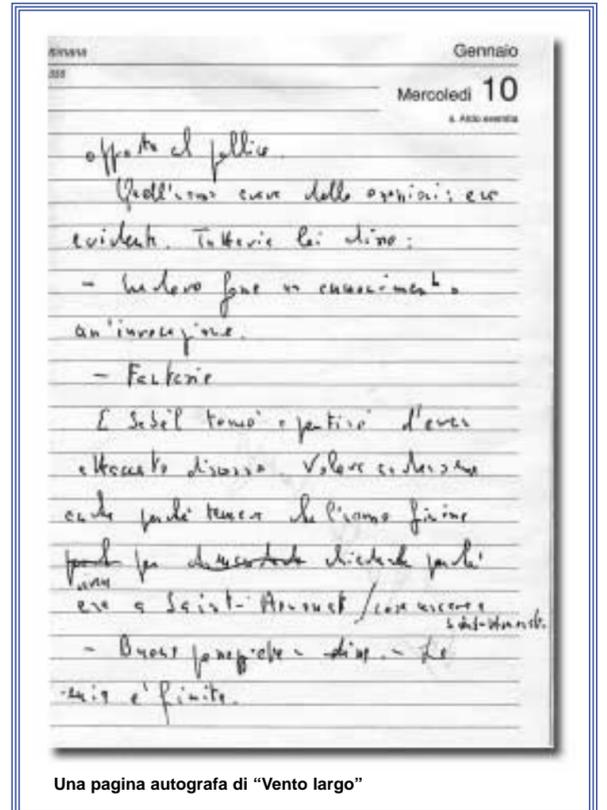 Gennaio
Mercoledì 10
s. Aldo eremita
opposto al pollice.
Quell'uomo aveva delle opinioni: era
evidente. Tuttavia lei disse:
- forse un
un'invocazione.
- Fantasie
E Sebèl tornò a pentirsi d'aver
attaccato discorso. Voleva andarsene
anche perché temeva che l'uomo finisse
per chiederle perché
era a Saint- / cosa
- Buona passeggiata - disse. - La
mia è finita.
Una pagina autografa di “Vento largo”